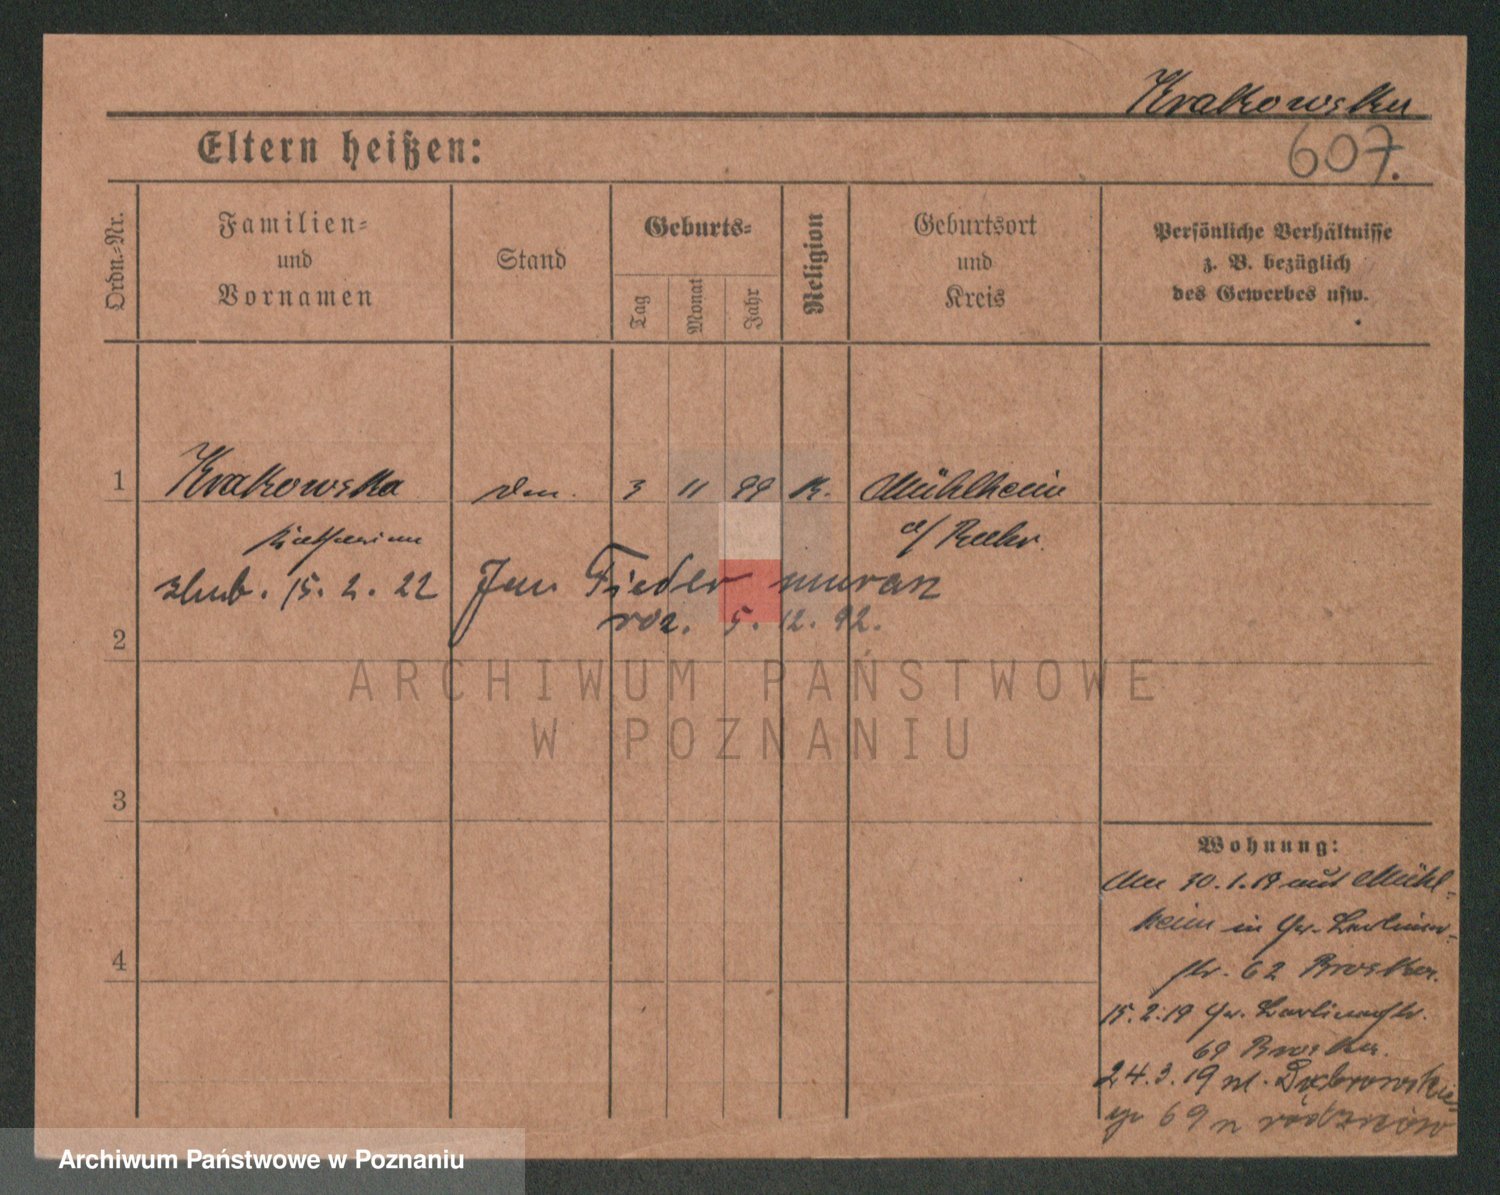 Krakowska
607.
Eltern heißen:
Ordn.-Nr.
Familien-
und
Vornamen
Stand
Geburts-
Tag
Monat
Jahr
Religion
Geburtsort
und
Kreis
Persönliche Verhältnisse
z. B. bezüglich
des Gewerbes usw.
1 Krakowska 3 11 99 K. Mühlheim
a/ Ruhr.
ślub. 15. 2. 22 Jan Fiedler murarz
2 roz. 5. 12. 92.
ARCHIWUM PAŃSTWOWE
W POZNANIU
3
Wohnung:
30.1.19 aus Mühl-
heim in Gr. Berliner-
4
str. 62
15.2.19 Gr. Berlinerstr.
69
24.3.19 ul. Dąbrowskie-
go 69 u rodziców
Archiwum Państwowe w Poznaniu